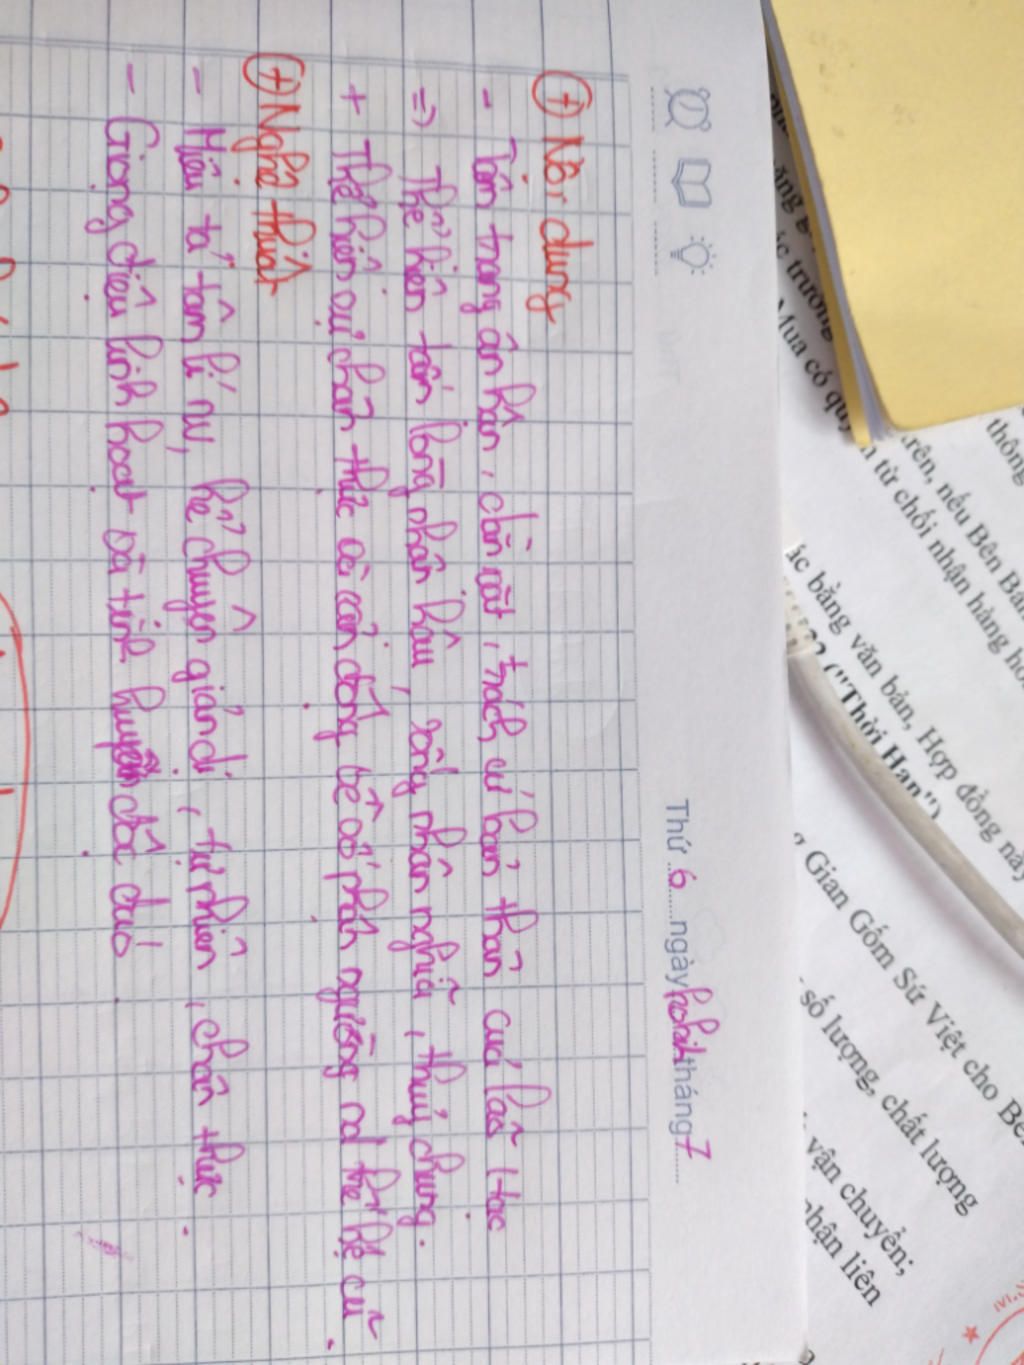 Thứ 6 ngày tháng 7
(+) Nội dung
- Tâm trạng ân hận, day dứt, trách cứ bản thân của lão Hạc
=> Thể hiện tấm lòng nhân hậu, sống nhân nghĩa, thuỷ chung.
+ Thể hiện sự chân thực và cảm động về số phận người nd thế hệ cũ.
(+) Nghệ thuật
- Miêu tả tâm lí nv, kể chuyện giản dị, tự nhiên, chân thực.
- Giọng điệu linh hoạt và tình huyến độc đáo.
trường
Mua có quy
thông
trên, nếu Bên Bán
từ chối nhận hàng ho
ác bằng văn bản, Hợp đồng này
("Thời Hạn")
Gian Gốm Sứ Việt cho Bê
số lượng, chất lượng
vận chuyển;
nhận liên